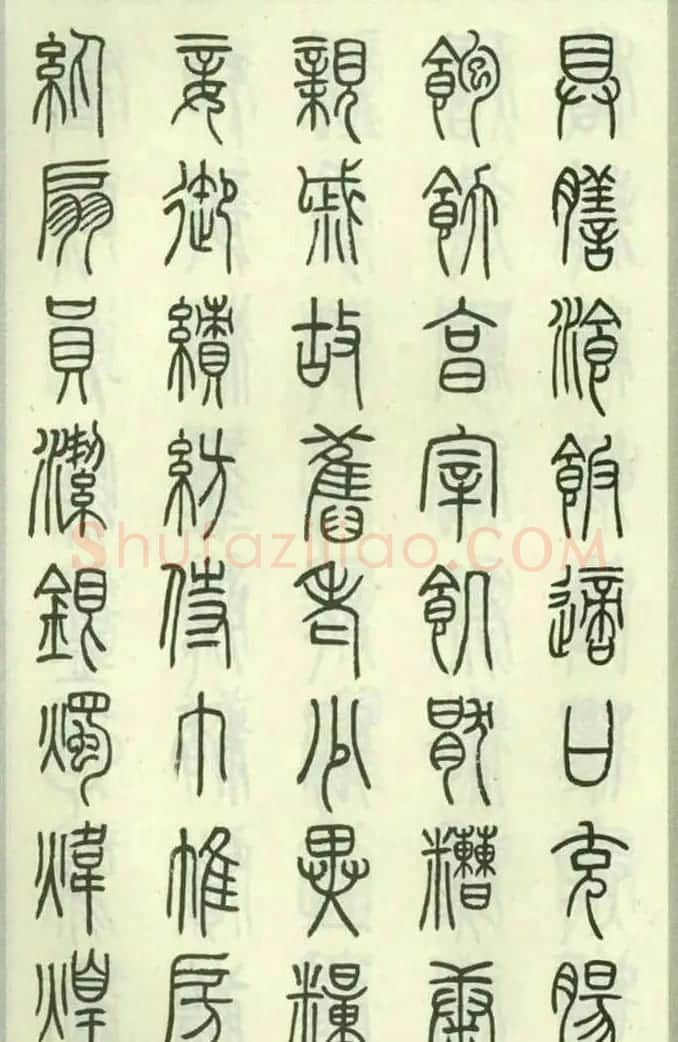 具膳湌飯適口充腸
飽飫亯宰飢猒糟康
親戚故舊老少異糧
妾御績紡侍巾帷房
紈扇員潔銀燭煒煌
Shufaziliao.COM